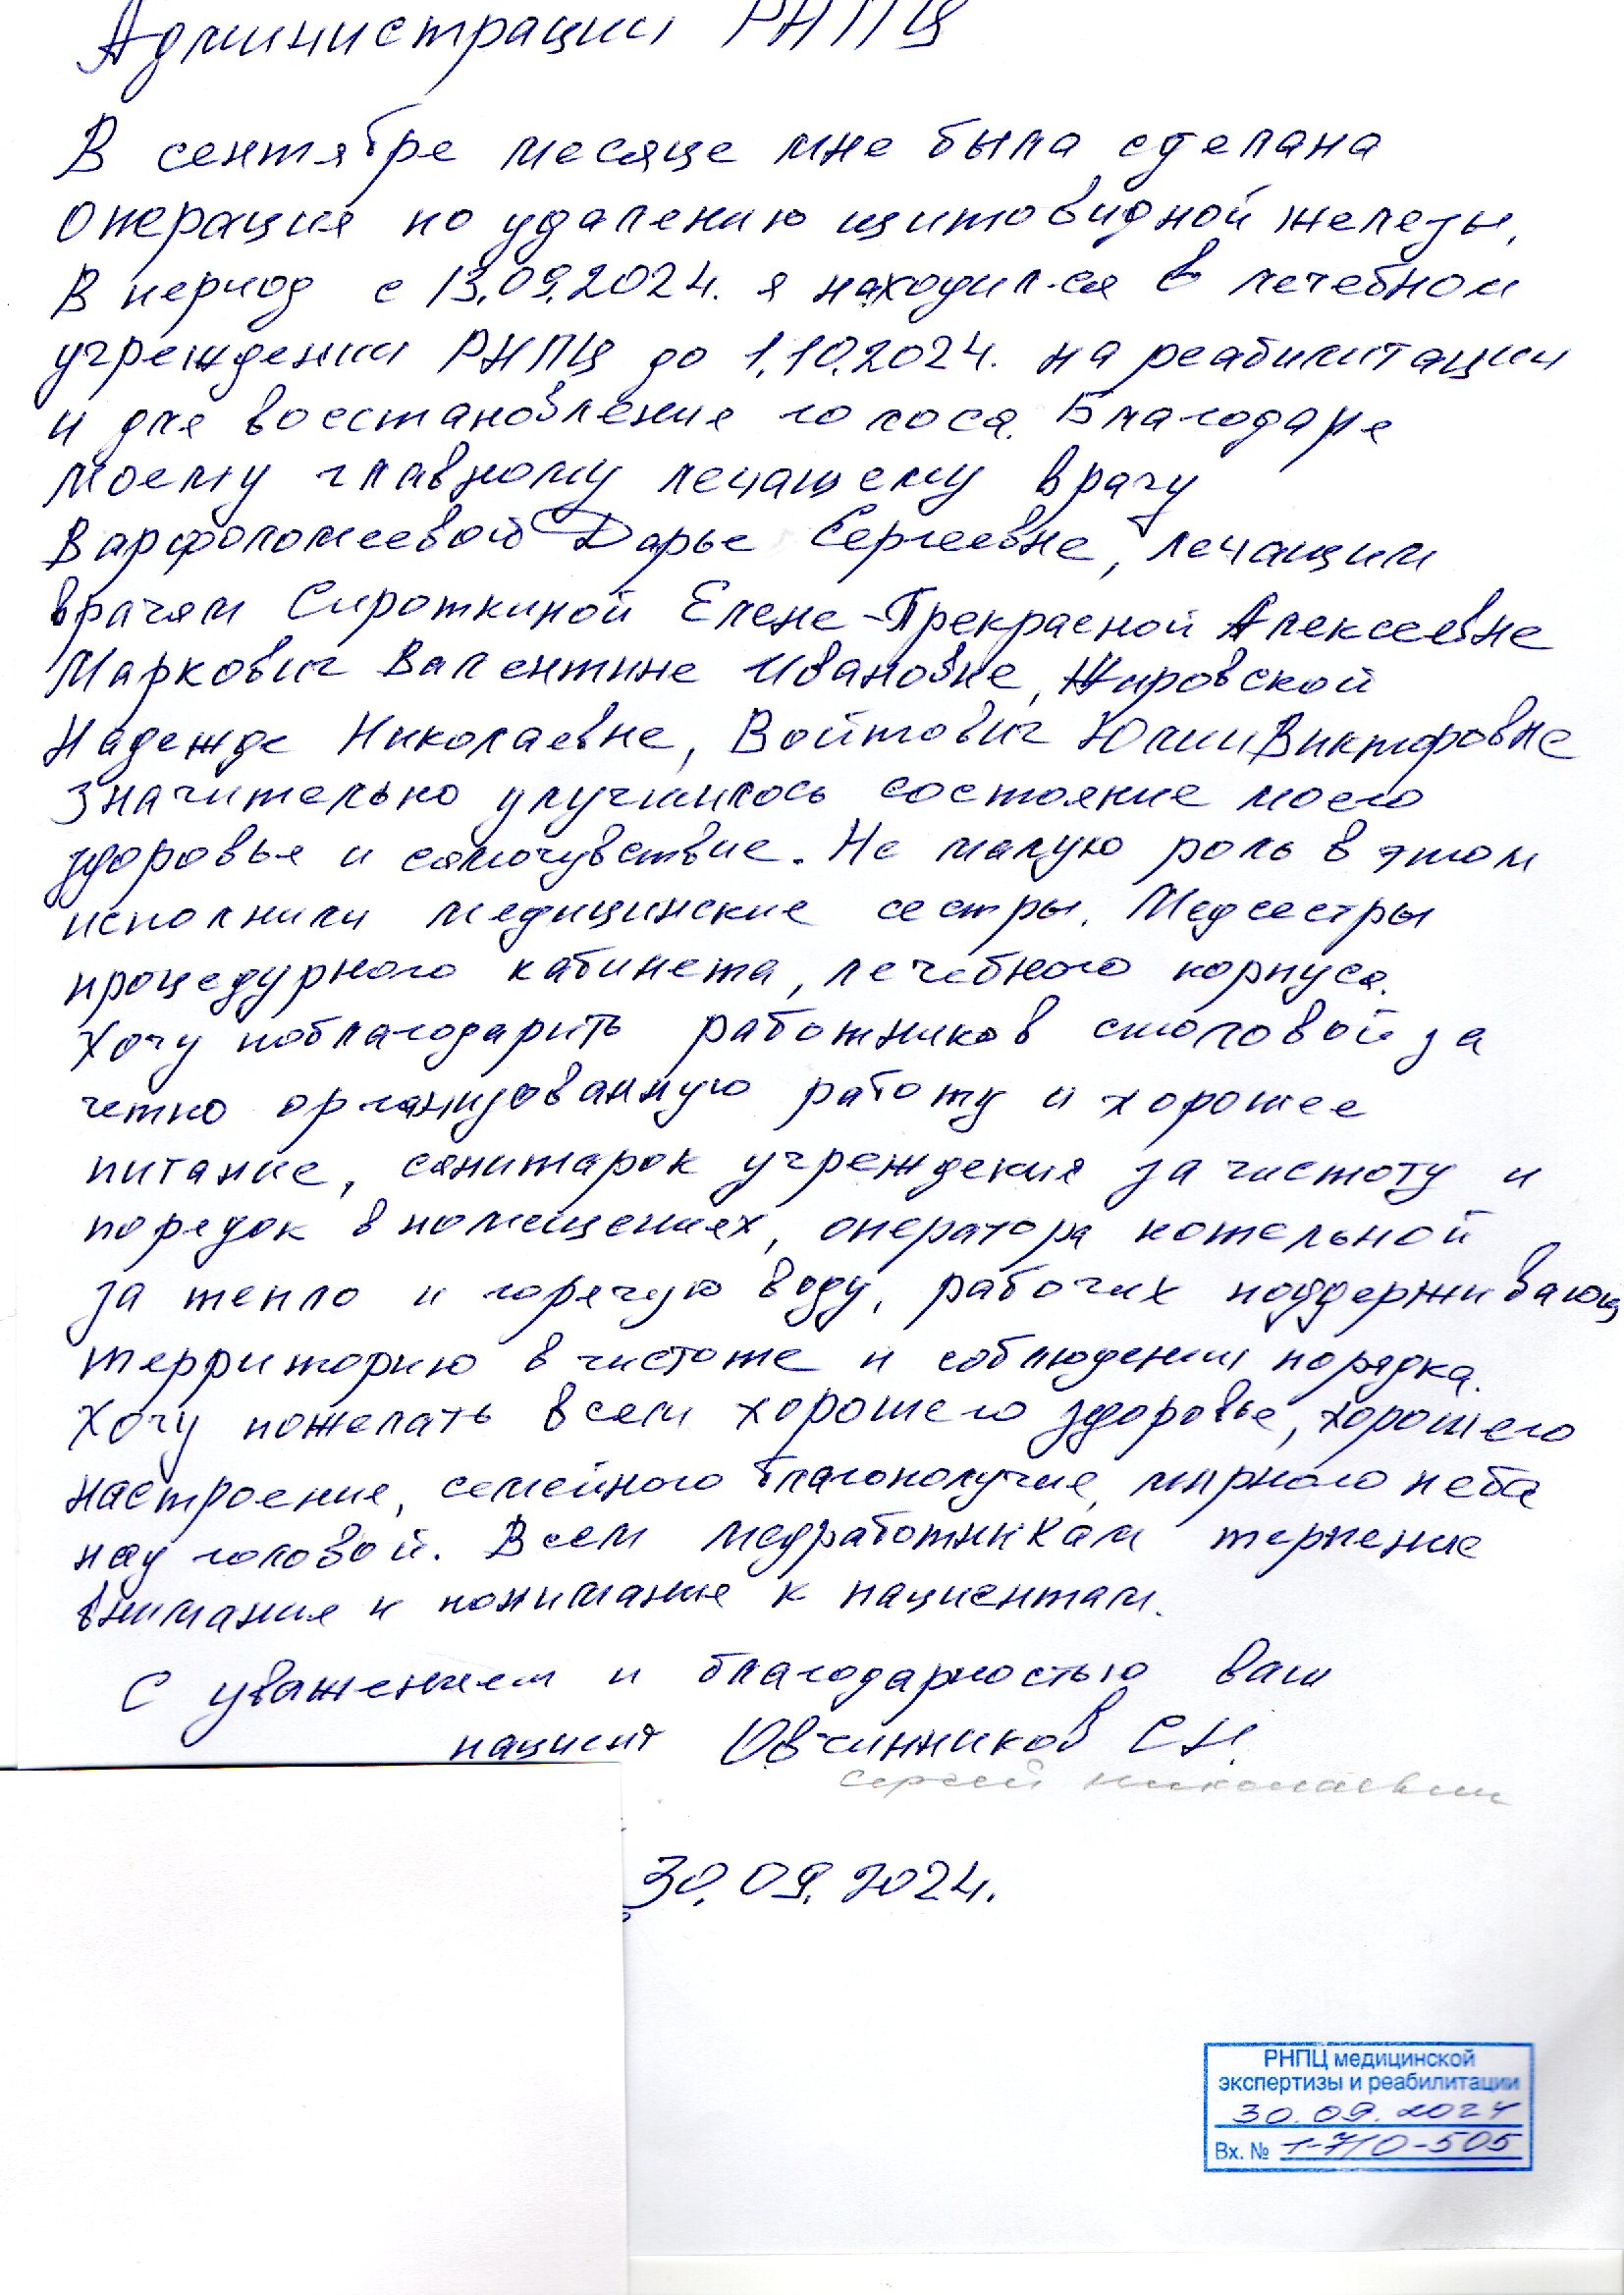 Администрации РНПЦ
В сентябре месяце мне была сделана
операция по удалению щитовидной железы.
В период с 13.09.2024. я находил-ся в лечебном
учреждении РНПЦ до 1.10.2024. на реабилитации
и для восстановления голоса. Благодаря
моему главному лечащему врачу
Варфоломеевой Дарье Сергеевне, лечащим
врачам Сироткиной Елене-Прекрасной Алексеевне
Маркович Валентине Ивановне, Жировской
Надежде Николаевне, Войтович Юлии Викторовне
значительно улучшилось состояние моего
здоровья и самочувствие. Не малую роль в этом
исполнили медицинские сестры. Медсестры
процедурного кабинета, лечебного корпуса.
Хочу поблагодарить работников столовой за
четко организованную работу и хорошее
питание, санитарок учреждения за чистоту и
порядок в помещениях, оператора котельной
за тепло и горячую воду, рабочих поддерживающ
территорию в чистоте и соблюдении порядка.
Хочу пожелать всем хорошего здоровья, хорошего
настроения, семейного благополучия, мирного неба
над головой. Всем медработникам терпения
внимания и понимания к пациентам.
С уважением и благодарностью ваш
пациент Овчинников С.Н.
Сергей Николаевич
30.09.2024.
РНПЦ медицинской
экспертизы и реабилитации
30.09.2024
Вх. № 1-7/О-505